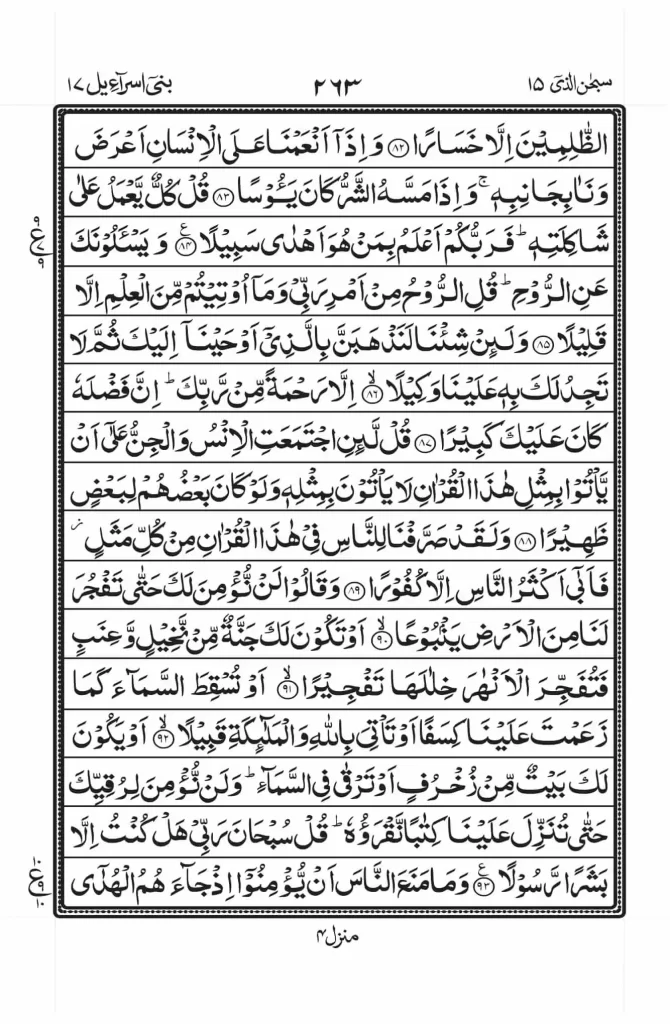 سبحٰن الذیٓ ۱۵ ۲۶۳ بنیٓ اسرآءیل ۱۷
الظّٰلِمِيْنَ اِلَّا خَسَارًا ﴿۸۲﴾ وَاِذَآ اَنْعَمْنَا عَلَى الْاِنْسَانِ اَعْرَضَ
وَنَاٰ بِجَانِبِهٖ ۚ وَاِذَا مَسَّهُ الشَّرُّ كَانَ يَـُٔوْسًا ﴿۸۳﴾ قُلْ كُلٌّ يَّعْمَلُ عَلٰى
شَاكِلَتِهٖ ؕ فَرَبُّكُمْ اَعْلَمُ بِمَنْ هُوَ اَهْدٰى سَبِيْلًا ﴿۸۴﴾ وَيَسْـَٔلُوْنَكَ
عَنِ الرُّوْحِ ؕ قُلِ الرُّوْحُ مِنْ اَمْرِ رَبِّىْ وَمَآ اُوْتِيْتُمْ مِّنَ الْعِلْمِ اِلَّا
قَلِيْلًا ﴿۸۵﴾ وَلَىِٕنْ شِئْنَا لَنَذْهَبَنَّ بِالَّذِىْٓ اَوْحَيْنَآ اِلَيْكَ ثُمَّ لَا
تَجِدُ لَكَ بِهٖ عَلَيْنَا وَكِيْلًا ﴿۸۶﴾ اِلَّا رَحْمَةً مِّنْ رَّبِّكَ ؕ اِنَّ فَضْلَهٗ
كَانَ عَلَيْكَ كَبِيْرًا ﴿۸۷﴾ قُلْ لَّىِٕنِ اجْتَمَعَتِ الْاِنْسُ وَالْجِنُّ عَلٰٓى اَنْ
يَّاْتُوْا بِمِثْلِ هٰذَا الْقُرْاٰنِ لَا يَاْتُوْنَ بِمِثْلِهٖ وَلَوْ كَانَ بَعْضُهُمْ لِبَعْضٍ
ظَهِيْرًا ﴿۸۸﴾ وَلَقَدْ صَرَّفْنَا لِلنَّاسِ فِىْ هٰذَا الْقُرْاٰنِ مِنْ كُلِّ مَثَلٍ ز
فَاَبٰٓى اَكْثَرُ النَّاسِ اِلَّا كُفُوْرًا ﴿۸۹﴾ وَقَالُوْا لَنْ نُّؤْمِنَ لَكَ حَتّٰى تَفْجُرَ
لَنَا مِنَ الْاَرْضِ يَنْۢبُوْعًا ﴿۹۰﴾ اَوْ تَكُوْنَ لَكَ جَنَّةٌ مِّنْ نَّخِيْلٍ وَّعِنَبٍ
فَتُفَجِّرَ الْاَنْهٰرَ خِلٰلَهَا تَفْجِيْرًا ﴿۹۱﴾ اَوْ تُسْقِطَ السَّمَآءَ كَمَا
زَعَمْتَ عَلَيْنَا كِسَفًا اَوْ تَاْتِىَ بِاللّٰهِ وَالْمَلٰٓىِٕكَةِ قَبِيْلًا ﴿۹۲﴾ اَوْ يَكُوْنَ
لَكَ بَيْتٌ مِّنْ زُخْرُفٍ اَوْ تَرْقٰى فِى السَّمَآءِ ؕ وَلَنْ نُّؤْمِنَ لِرُقِيِّكَ
حَتّٰى تُنَزِّلَ عَلَيْنَا كِتٰبًا نَّقْرَؤُهٗ ؕ قُلْ سُبْحَانَ رَبِّىْ هَلْ كُنْتُ اِلَّا
بَشَرًا رَّسُوْلًا ﴿۹۳﴾ وَمَا مَنَعَ النَّاسَ اَنْ يُّؤْمِنُوْٓا اِذْ جَآءَهُمُ الْهُدٰٓى
منزل ۴